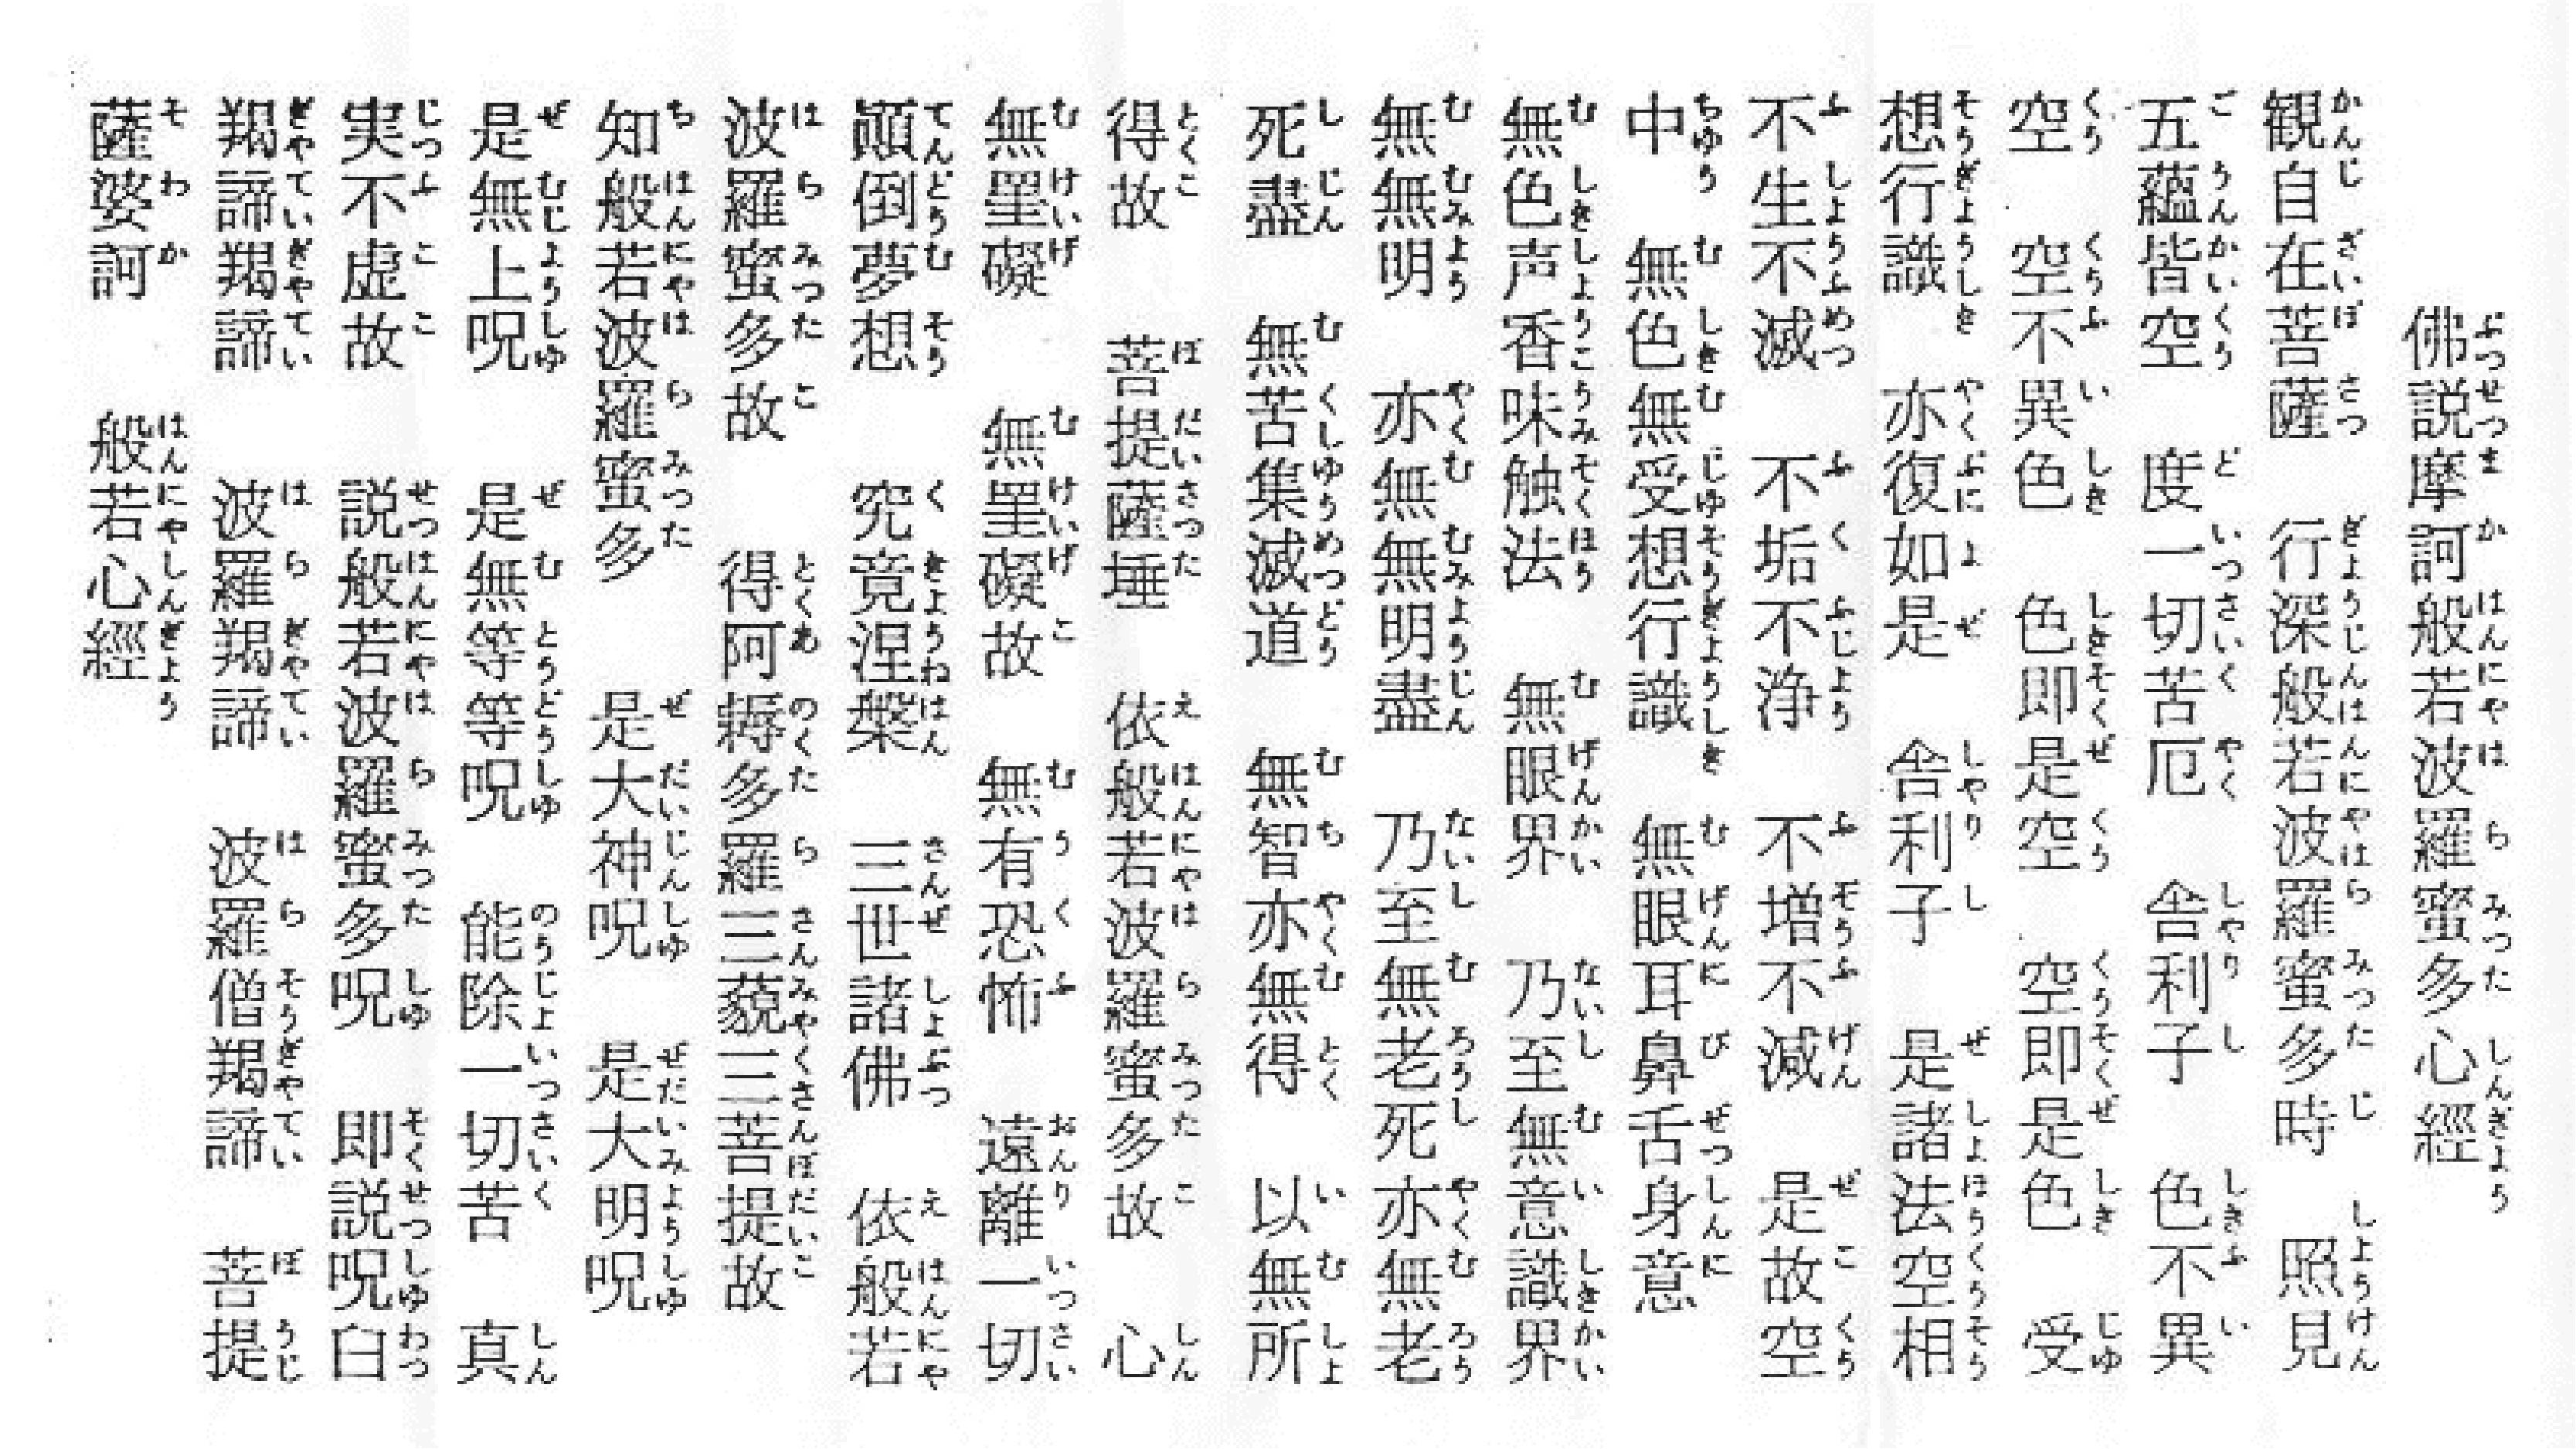 佛説摩訶般若波羅蜜多心經
観自在菩薩 行深般若波羅蜜多時 照見
五蘊皆空 度一切苦厄 舎利子 色不異
空 空不異色 色即是空 空即是色 受
想行識 亦復如是 舎利子 是諸法空相
不生不滅 不垢不浄 不増不減 是故空
中 無色無受想行識 無眼耳鼻舌身意
無色声香味触法 無眼界 乃至無意識界
無無明 亦無無明盡 乃至無老死 亦無老
死盡 無苦集滅道 無智亦無得 以無所
得故 菩提薩埵 依般若波羅蜜多故 心
無罣礙 無罣礙故 無有恐怖 遠離一切
顚倒夢想 究竟涅槃 三世諸佛 依般若
波羅蜜多故 得阿耨多羅三藐三菩提故
知般若波羅蜜多 是大神呪 是大明呪
是無上呪 是無等等呪 能除一切苦 真
実不虚故 説般若波羅蜜多呪 即説呪曰
羯諦羯諦 波羅羯諦 波羅僧羯諦 菩提
薩婆訶 般若心經